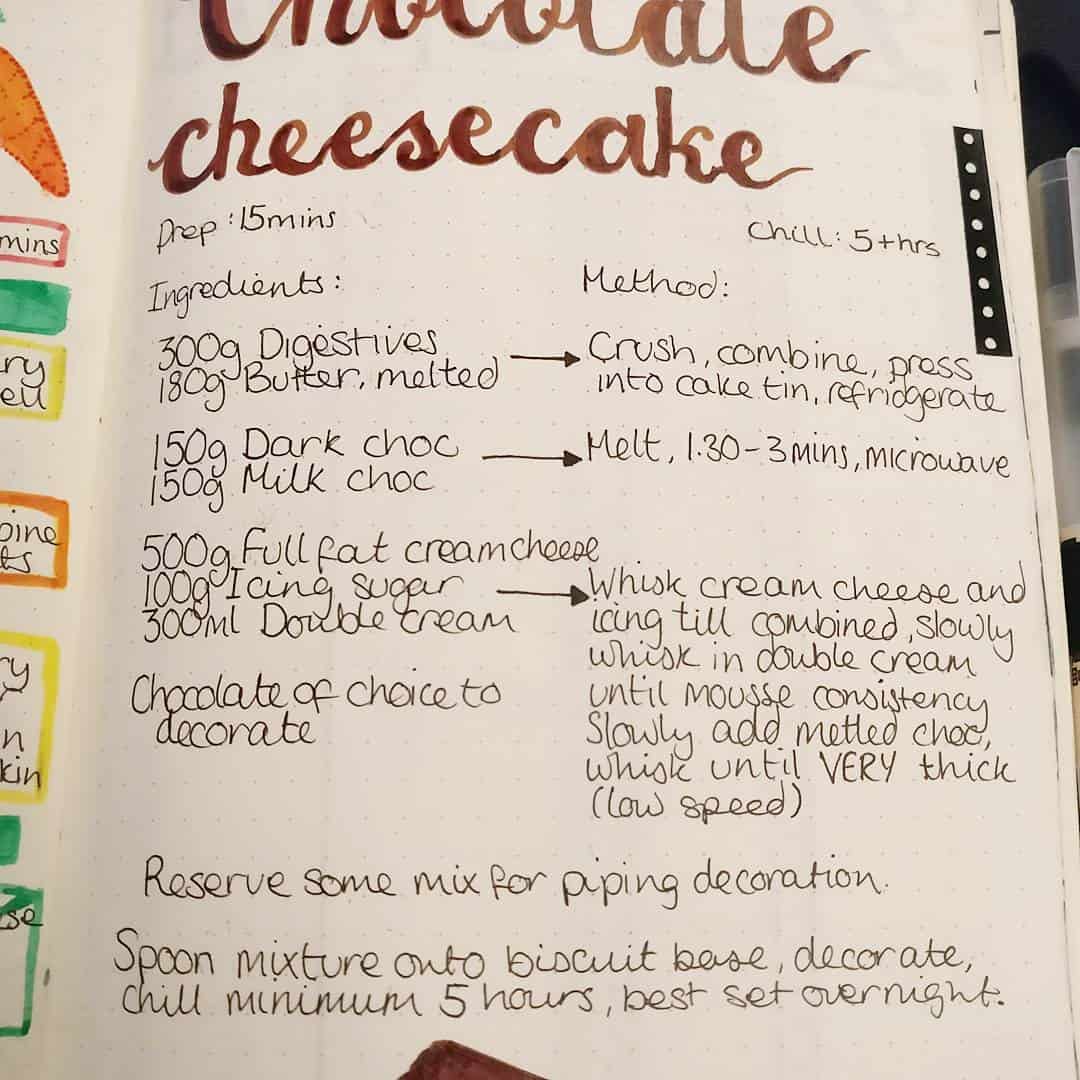 Chocolate
cheesecake
Prep: 15mins
Chill: 5+hrs
Ingredients:
300g Digestives
180g Butter, melted
150g Dark choc
150g Milk choc
500g Full fat creamcheese
100g Icing sugar
300ml Double cream
Chocolate of choice to
decorate
Method:
Crush, combine, press
into cake tin, refridgerate
Melt, 1.30-3mins, microwave
Whisk cream cheese and
icing till combined, slowly
whisk in double cream
until mousse consistency
Slowly add metled choc,
whisk until VERY thick
(low speed)
Reserve some mix for piping decoration.
Spoon mixture onto biscuit base, decorate,
chill minimum 5 hours, best set overnight.
mins
ry
ell
bine
ts
ry
n
kin
se